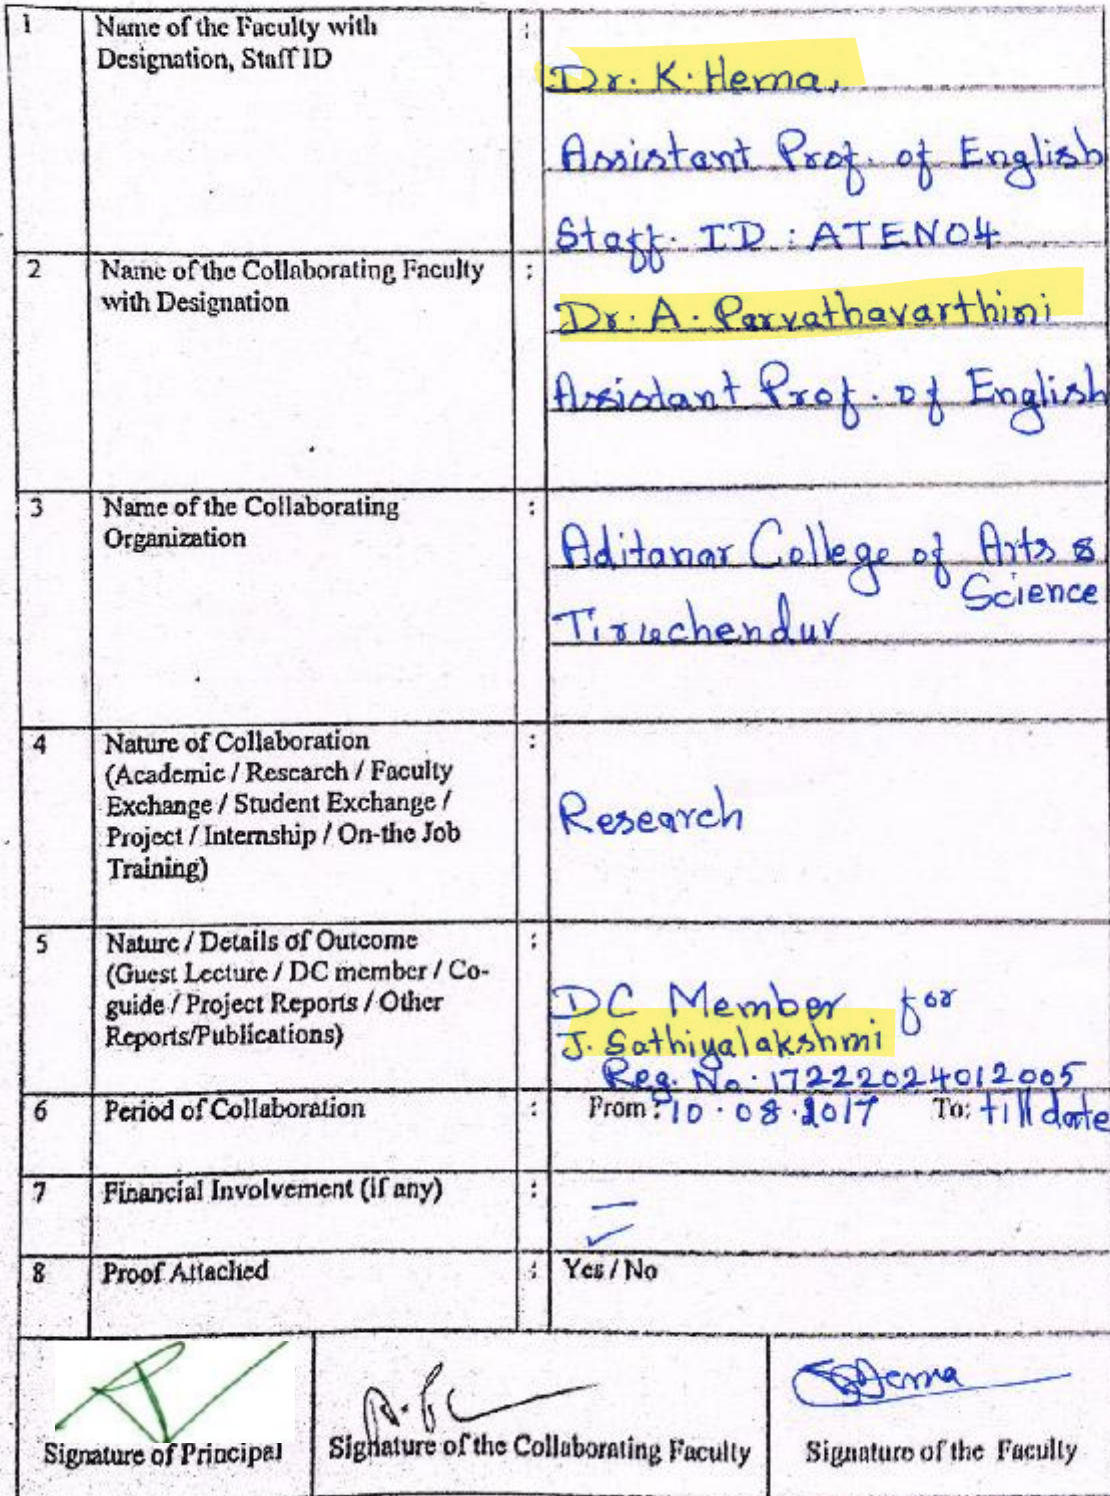 1 Name of the Faculty with :
Designation, Staff ID
Dr. K. Hema,
Assistant Prof. of English
Staff. ID : ATEN04
2 Name of the Collaborating Faculty :
with Designation
Dr. A. Parvathavarthini
Assistant Prof. of English
3 Name of the Collaborating :
Organization
Aditanar College of Arts &
Science
Tiruchendur
4 Nature of Collaboration :
(Academic / Research / Faculty
Exchange / Student Exchange /
Project / Internship / On-the Job
Training)
Research
5 Nature / Details of Outcome :
(Guest Lecture / DC member / Co-
guide / Project Reports / Other
Reports/Publications)
DC Member for
J. Sathiyalakshmi
Reg. No. 17222024012005
6 Period of Collaboration : From : 10.08.2017 To: till date
7 Financial Involvement (if any) :
8 Proof Attached : Yes / No
Hema
Signature of Principal Signature of the Collaborating Faculty Signature of the Faculty